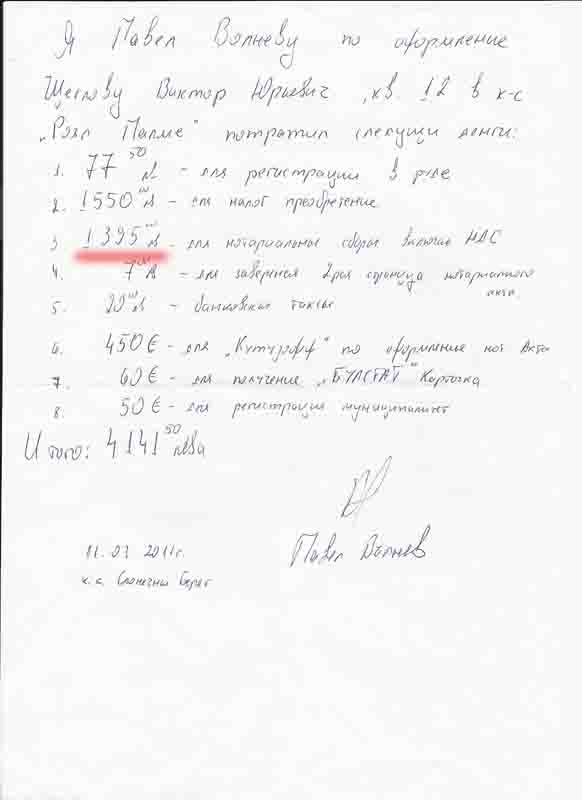 Я Павел Вълневу по оформление
Щеглову Виктор Юрьевич, кв. 12 в к-с
„Роял Палмс" потратил следущи денги:
1. 77 50 л - для регистрации в
2. 1550 00 л - для налог преобретение
3 1395 00 л - для нотариалные сборы включая НДС
4. 7 00 л - для заверения 2рая страница нотариалного
акта
5. 20 00 л - банковские таксы
6. 450 € - для „Кутузофф" по оформление нот Акта
7. 60 € - для получение „БУЛСТАТ" Карточка
8. 50 € - для регистрация муниципалитет
Итого: 4141 50 лева
Павел Вълнев
11.07 2011г.
к.с. Слънечны Берег